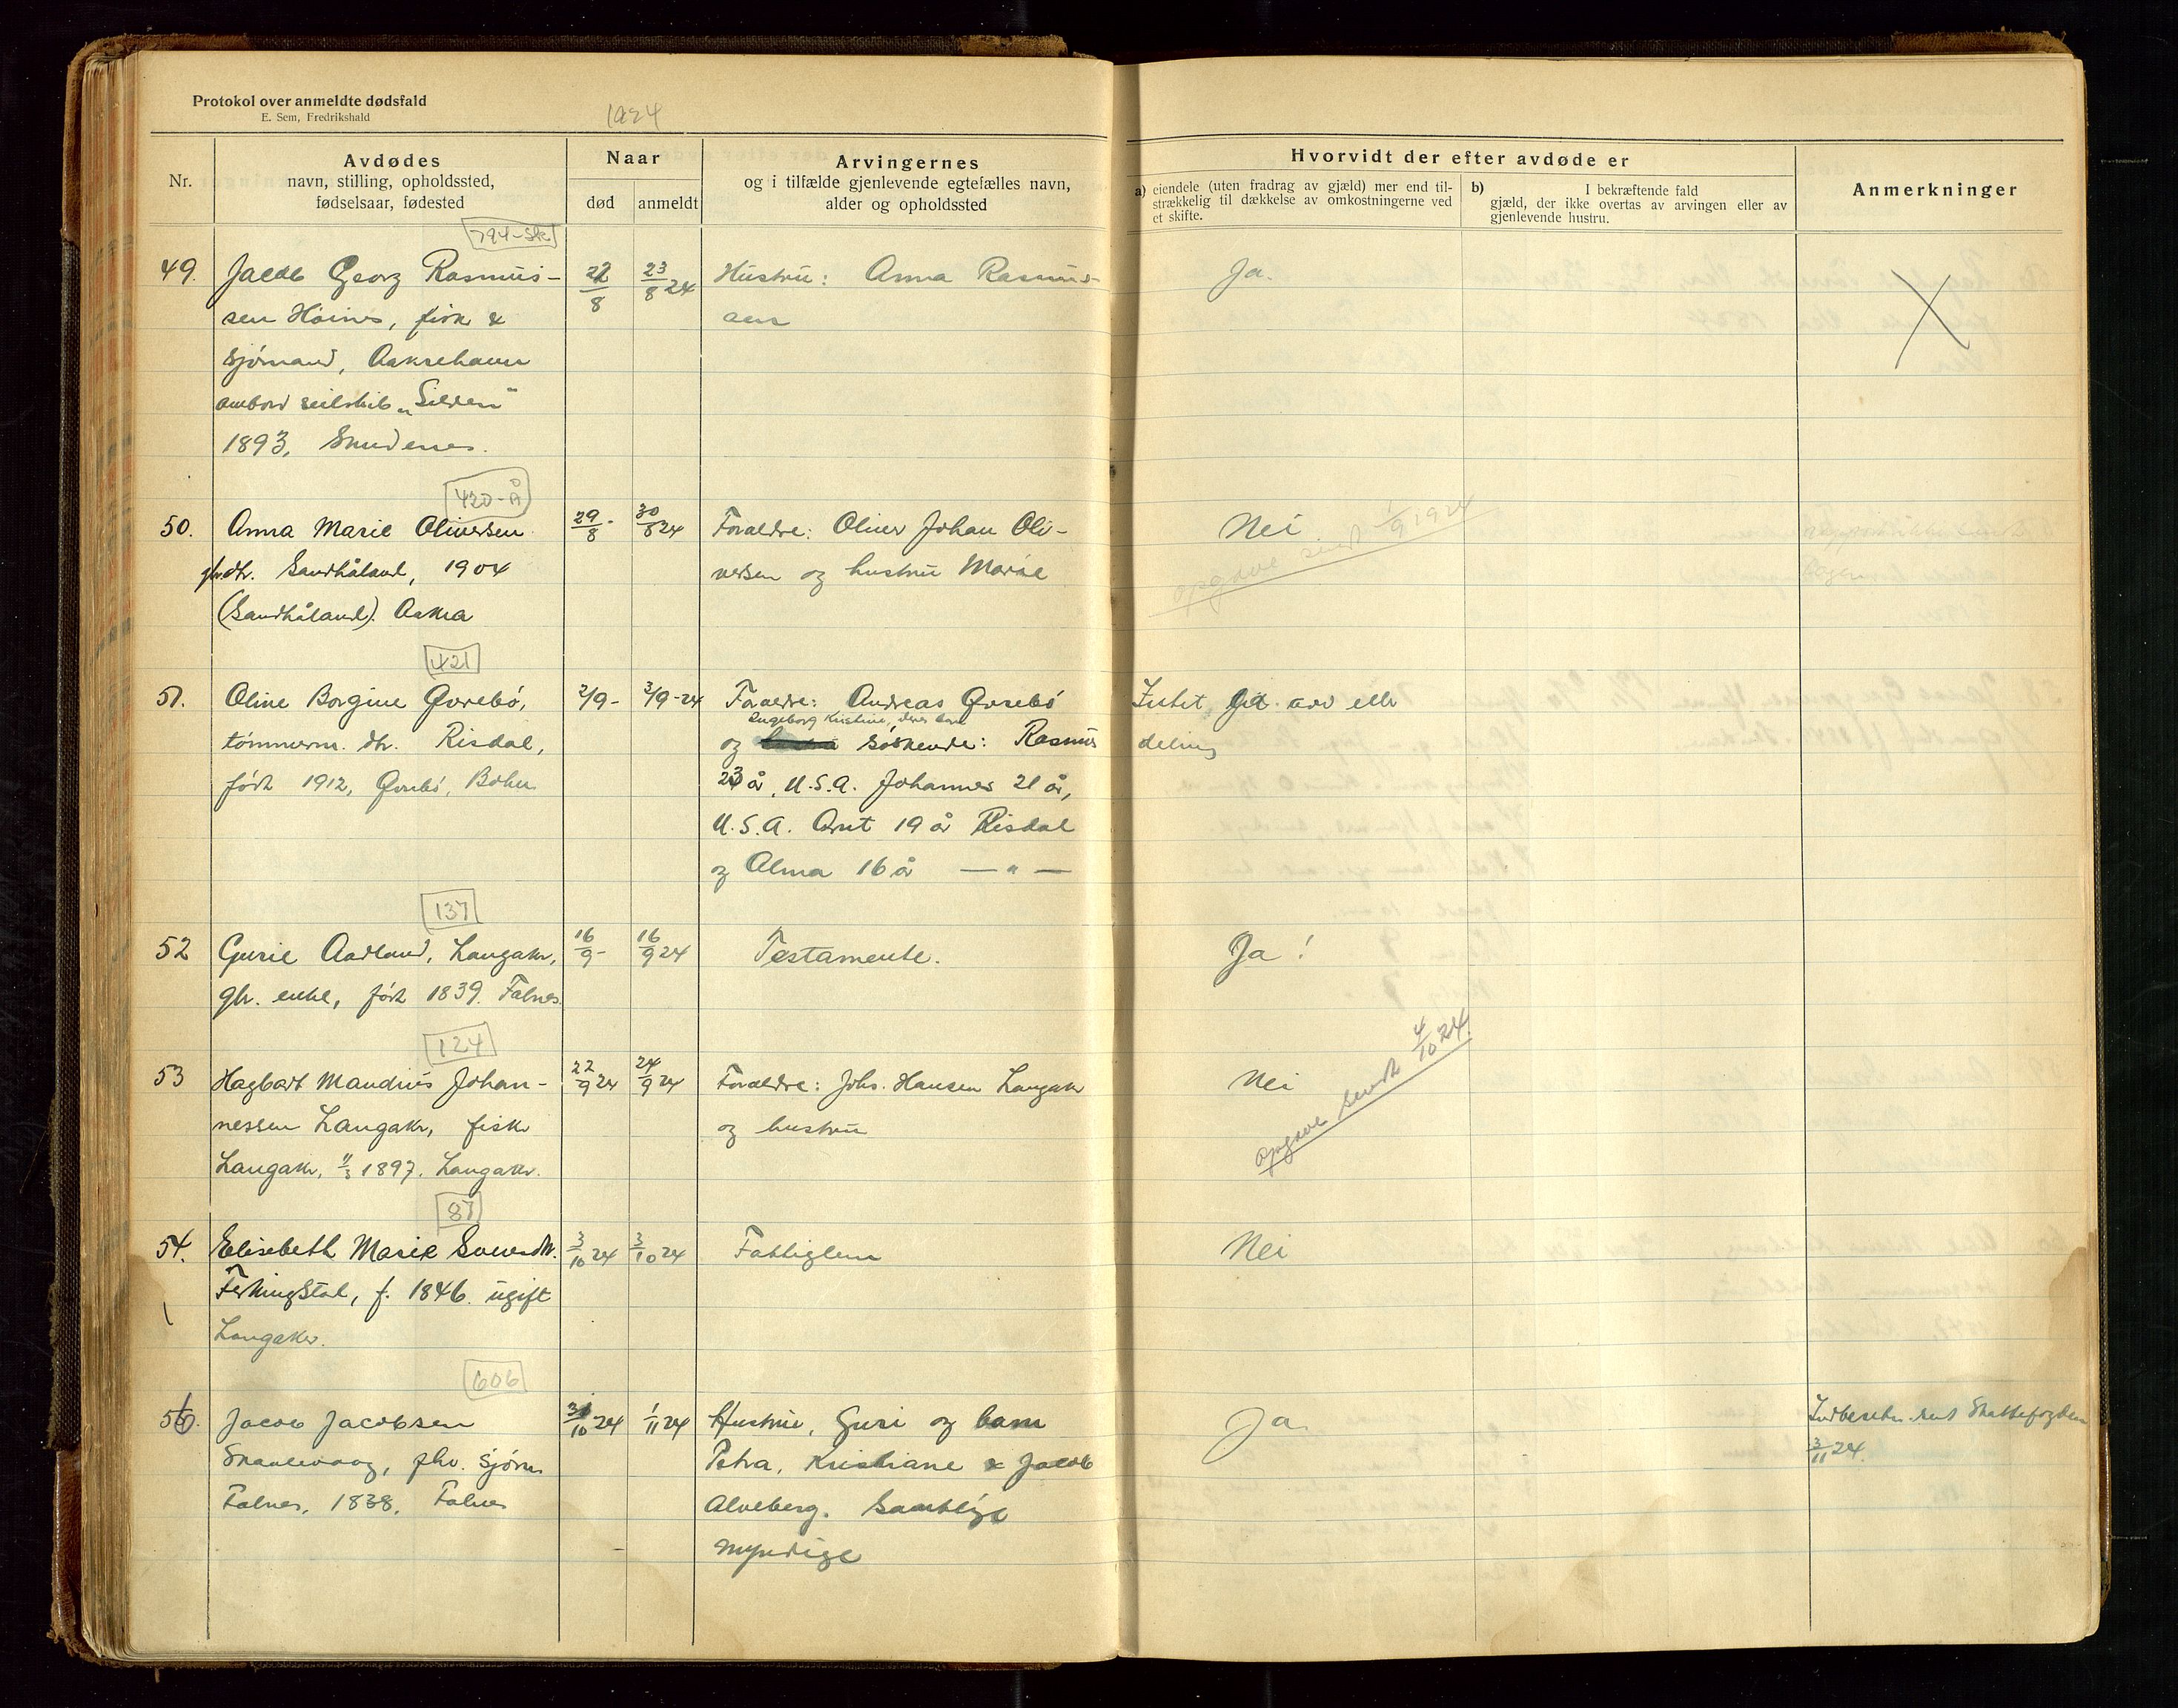 Protokol over anmeldte dødsfald
E. Sem, Fredrikshald
1924
Nr.
Avdødes
navn, stilling, opholdssted,
fødselsaar, fødested
Naar
død
anmeldt
Arvingernes
og i tilfælde gjenlevende egtefælles navn,
alder og opholdssted
Hvorvidt der efter avdøde er
a) eiendele (uten fradrag av gjæld) mer end til-
strækkelig til dækkelse av omkostningerne ved
et skifte.
b) I bekræftende fald
gjæld, der ikke overtas av arvingen eller av
gjenlevende hustru.
Anmerkninger
794-Sk
49. Jacob Georg Rasmus- 22/8 23/8 24 Hustru: Anna Rasmus- Ja.
sen Høines, fisk & sen
sjømand, Aakrehavn
ombord seilskib „Silden"
1893, Skudenes.
420-Å
50. Anna Marie Oliversen 29/8 30/8 24 Foraldre: Oliver Johan Oli- Nei
gbr.dtr. Sandhåland, 1904 versen og hustru Marie opgave sendt 1/9 1924
(Sandhåland). Aakra
421
51. Oline Borgine Øvrebö, 2/9- 3/9-24 Foraldre: Andreas Øvrebö Intet arv eller
Ingeborg Kristine, deres barn
tömmerm. dtr. Risdal, og søskende: Rasmus deling
født 1912, Øvrebö, Bokn 23 år, U.S.A. Johannes 21 år,
U.S.A. Arnt 19 år Risdal
og Alma 16 år — " —
137
52 Gurie Aadland, Langaker, 16/9- 16/9 24 Testamente. Ja!
gbr. enke, født 1839. Falnes.
124
53 Hagbart Maudius Johan- 22/9 24 24/9 24 Foraldre: Johs. Hansen Langaker Nei
nessen Langaker, fisker og hustru opgave sendt 4/10 24.
Langaker, 11/3 1897. Langaker.
87
54. Elisebeth Marie Svensdtr. 3/10 24 3/10 24 Fattiglem Nei
Ferkingstad, f. 1846. ugift
Langaker.
606
56. Jacob Jacobsen 31/10 24 1/11 24 Hustru, Guri og barn Ja Indberetn. sent Skattefogden
Snaalevaag, fhv. sjøm. Petra, Kristiane & Jacob 3/11 24.
Falnes, 1838, Falnes Alveberg. Samtlige
myndige